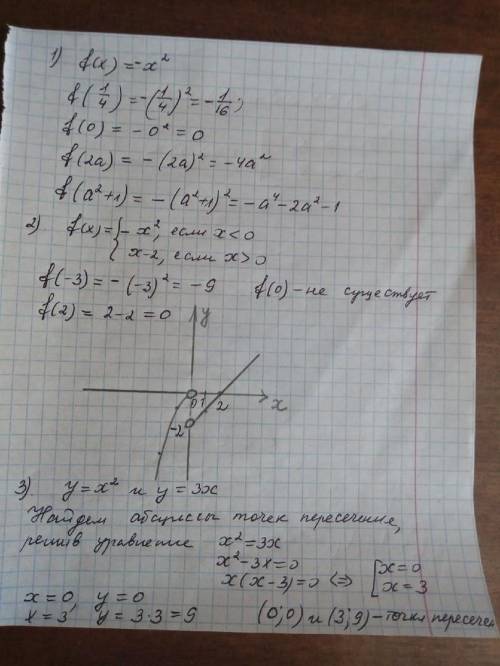 1) f(x) = -x²
f(1/4) = -(1/4)² = -1/16;
f(0) = -0² = 0
f(2a) = -(2a)² = -4a²
f(a²+1) = -(a²+1)² = -a⁴-2a²-1
2) f(x) = { -x², если x<0
x-2, если x>0
f(-3) = -(-3)² = -9 f(0) - не существует
f(2) = 2-2 = 0
y
0 1 2 x
-2
3) y = x² и y = 3x
Найдем абсциссы точек пересечения,
решив уравнение x² = 3x
x²-3x=0
x(x-3)=0 <=> [ x=0
x=3
x=0, y=0
x=3, y=3·3=9 (0;0) и (3;9) - точки пересечен